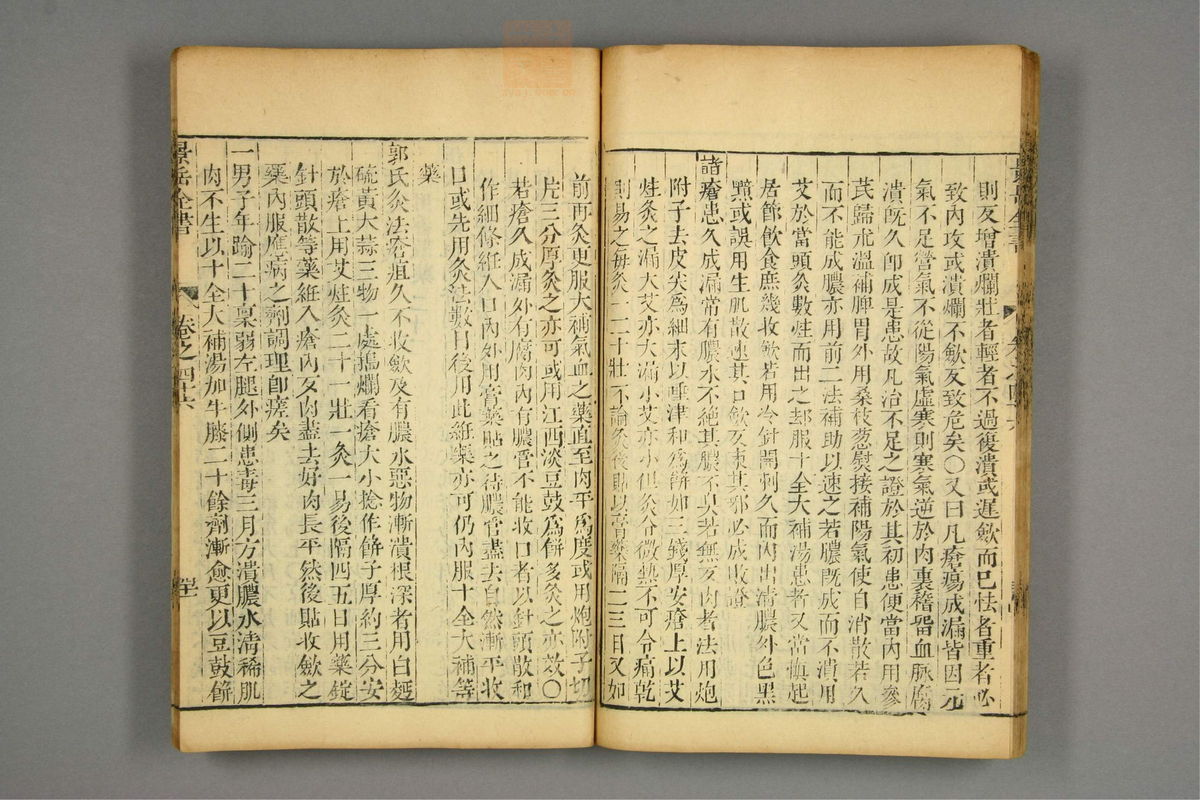 則反增潰爛壯者輕者不過復潰或遲歛而已怯者重者必
致內攻或潰爛不歛反致危矣○又曰凡瘡瘍成漏皆因元
氣不足營氣不從陽氣虛寒則寒氣逆於肉裏稽畱血脉腐
潰旣久卽成是患故凡治不足之證於其初患便當內用參
芪歸朮溫補脾胃外用桑枝葱熨接補陽氣使自消散若久
而不能成膿亦用前二法補助以速之若膿旣成而不潰用
艾於當頭灸數炷而出之却服十全大補湯患者又當愼起
居節飲食庶幾收歛若用冷針開刺久而內出清膿外色黑
黯或誤用生肌散速其口歛反束其邪必成敗證
諸瘡患久成漏常有膿水不絕其膿不臭若無歹肉者法用炮
附子去皮尖爲細末以唾津和爲餅如三錢厚安瘡上以艾
炷灸之漏大艾亦大漏小艾亦小但灸令微熱不可令痛乾
則易之每灸一二十壯不論灸後貼以膏藥隔二三日又如
前再灸更服大補氣血之藥直至肉平爲度或用炮附子切
片三分厚灸之亦可或用江西淡豆鼓爲餅多灸之亦效○
若瘡久成漏外有腐肉內有膿管不能收口者以針頭散和
作細條絍入口內外用膏藥貼之待膿管盡去自然漸平收
口或先用灸法數日後用此絍藥亦可仍內服十全大補等
藥
郭氏灸法瘡疽久不收歛及有膿水惡物漸潰根深者用白麪
硫黃大蒜三物一處搗爛看瘡大小捻作餅子厚約三分安
於瘡上用艾炷灸二十一壯一灸一易後隔四五日用藥錠
針頭散等藥絍入瘡內歹肉盡去好肉長平然後貼收歛之
藥內服應病之劑調理卽瘥矣
一男子年踰二十稟弱左腿外側患毒三月方潰膿水淸稀肌
肉不生以十全大補湯加牛膝二十餘劑漸愈更以豆鼓餅
景岳全書
卷之四十六